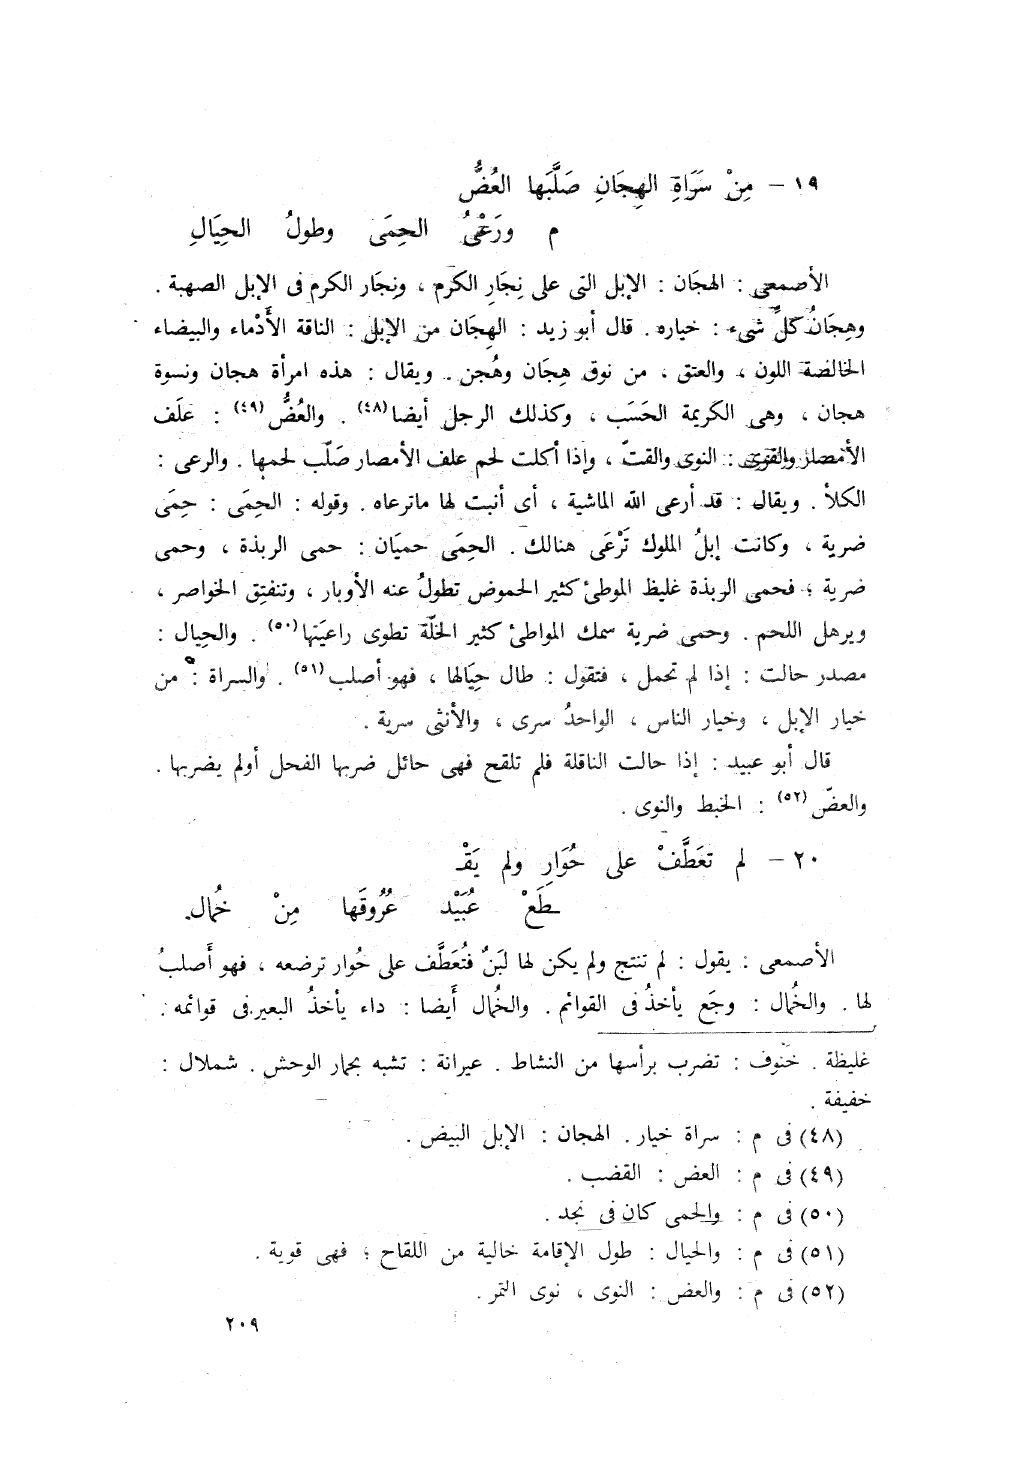 ١٩ – مِنْ سَرَاةِ الهِجَانِ صَلَّبَها العُضُّ
م ورَعْيُ الحِمَى وطولُ الحِيَالِ
الأصمعى : الهجَان : الإبل التى على نِجَارِ الكرم ، ونِجَار الكرم فى الإبل الصهبة .
وهِجَانُ كلِّ شىء : خياره . قال أبو زيد : الهِجَان من الإبل : الناقة الأَدْماء والبيضاء
الخالصة اللون ، والعتق ، من نوق هِجَان وهُجن . ويقال : هذه امرأة هجان ونسوة
هجان ، وهى الكريمة الحَسَب ، وكذلك الرجل أيضا (٤٨) . والعُضُّ (٤٩) : علَف
الأمصار والقرى : النوى والقتّ ، وإذا أكلت لحم علف الأمصار صَلّب لحمها . والرعى :
الكلأ . ويقال : قد أرعى الله الماشية ، أى أنبت لها ماترعاه . وقوله : الحِمَى : حِمَى
ضرية ، وكانت إبلُ الملوك تَرْعَى هنالك . الحِمَى حميَان : حمى الربذة ، وحمى
ضرية ؛ فحمى الربذة غليظ الموطئ كثير الحموض تطولُ عنه الأوبار ، وتنفتِق الخواصر ،
ويرهل اللحم . وحمى ضرية سمك المواطئ كثير الخلّة تطوى راعيَتها (٥٠) . والحِيال :
مصدر حالت : إذا لم تحمل ، فتقول : طال حِيَالها ، فهو أصلب (٥١) . والسراة : من
خيار الإبل ، وخيار الناس ، الواحدُ سرى ، والأنثى سرية .
قال أبو عبيد : إذا حالت الناقلة فلم تلقح فهى حائل ضربها الفحل أولم يضربها .
والعضّ (٥٢) : الخبط والنوى .
٢٠ – لم تعَطَّفْ على حُوَارِ ولم يَقْـ
ـطَعْ عُبَيْد عُرُوقَها مِنْ خُمال .
الأصمعى : يقول : لم تنتج ولم يكن لها لبَنٌ فتُعَطَّف على حُوار ترضعه ، فهو أَصلبُ
لها . والخُمال : وجَع يأخذُ فى القوائم . والخُمال أَيضا : داء يأخذُ البعير فى قوائمه .
غليظة . خَنوف : تضرب برأسها من النشاط . عيرانة : تشبه بحمار الوحش . شملال :
خفيفة .
(٤٨) فى م : سراة خيار . الهجان : الإبل البيض .
(٤٩) فى م : العض : القضب .
(٥٠) فى م : والحمى كان فى نجد .
(٥١) فى م : والحيال : طول الإقامة خالية من اللقاح ؛ فهى قوية .
(٥٢) فى م : والعض : النوى ، نوى التمر .
٢٠٩